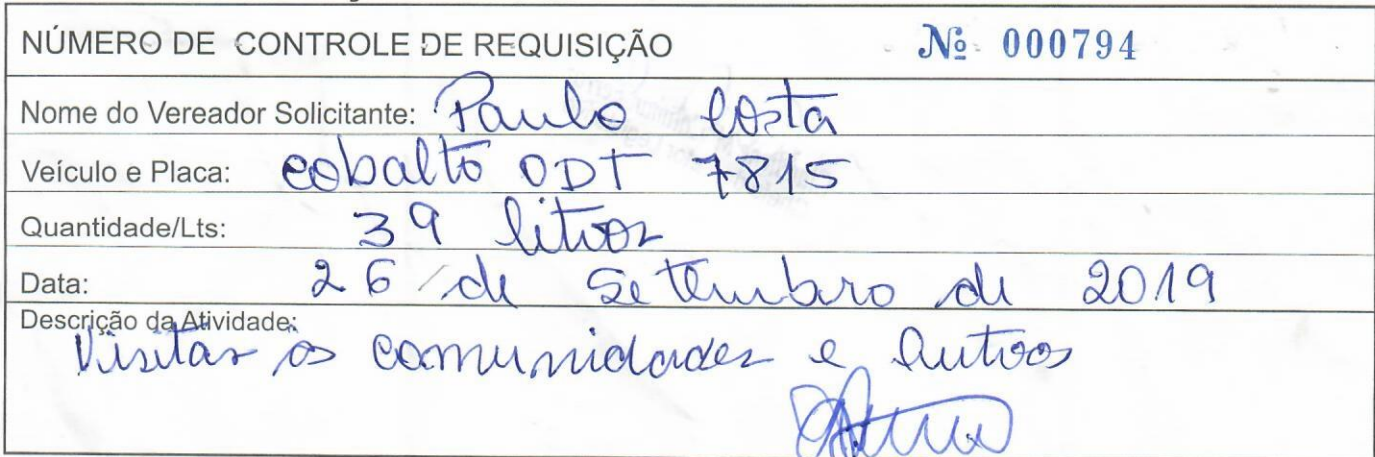 NÚMERO DE CONTROLE DE REQUISIÇÃO Nº 000794
Nome do Vereador Solicitante: Paulo Costa
Veículo e Placa: cobalto ODT 7815
Quantidade/Lts: 39 litros
Data: 26 de Setembro de 2019
Descrição da Atividade:
Visitas as comunidades e Outros